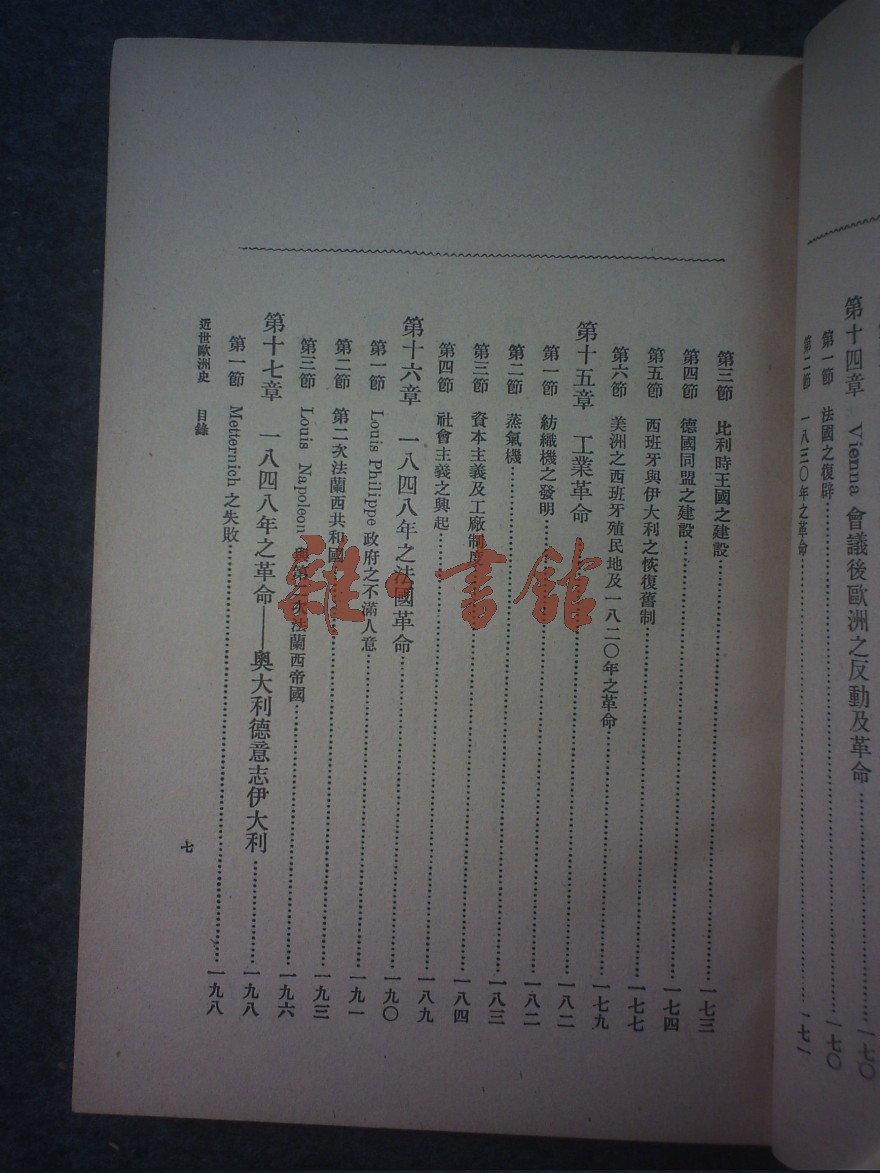 第十四章　Vienna 會議後歐洲之反動及革命……一七〇
第一節　法國之復辟……一七〇
第二節　一八三〇年之革命……一七一
第三節　比利時王國之建設……一七三
第四節　德國同盟之建設……一七四
第五節　西班牙與伊大利之恢復舊制……一七七
第六節　美洲之西班牙殖民地及一八二〇年之革命……一七九
第十五章　工業革命……一八二
第一節　紡織機之發明……一八二
第二節　蒸氣機……一八三
第三節　資本主義及工廠制度……一八四
第四節　社會主義之興起……一八九
第十六章　一八四八年之法國革命……一九〇
第一節　Louis Philippe 政府之不滿人意……一九一
第二節　第二次法蘭西共和國……一九三
第三節　Louis Napoleon 與第二次法蘭西帝國……一九六
第十七章　一八四八年之革命——奧大利德意志伊大利……一九八
第一節　Metternich 之失敗……一九八
近世歐洲史　目錄
七
雜·書館